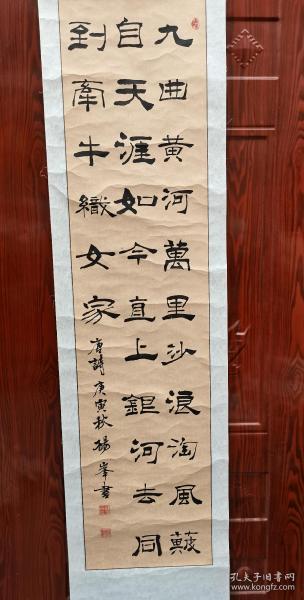 九曲黄河萬里沙浪淘風簸
自天涯如今直上銀河去同
到牽牛織女家
唐詩庚寅秋楊峯書
孔夫子旧书网
kongfz.com